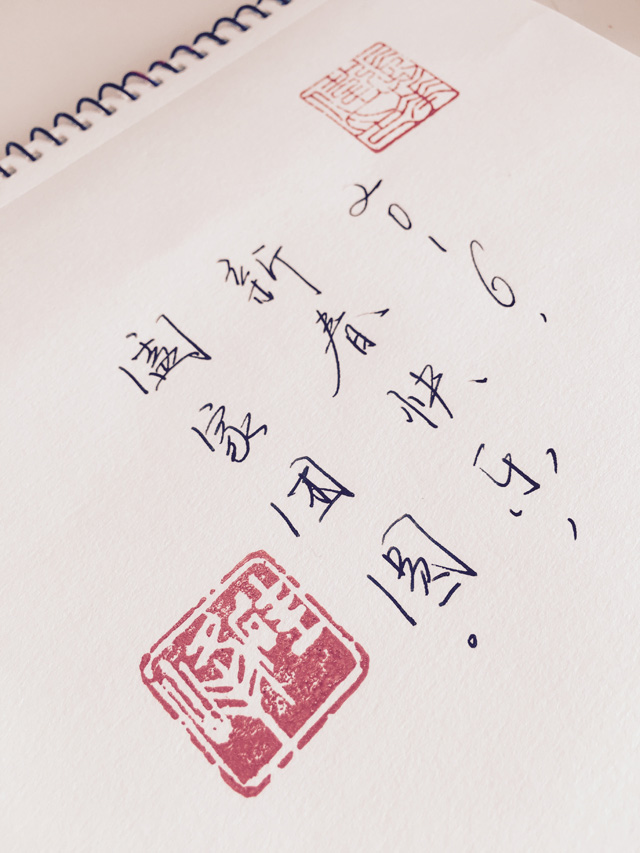 2016,
新春快乐,
阖家团圆。